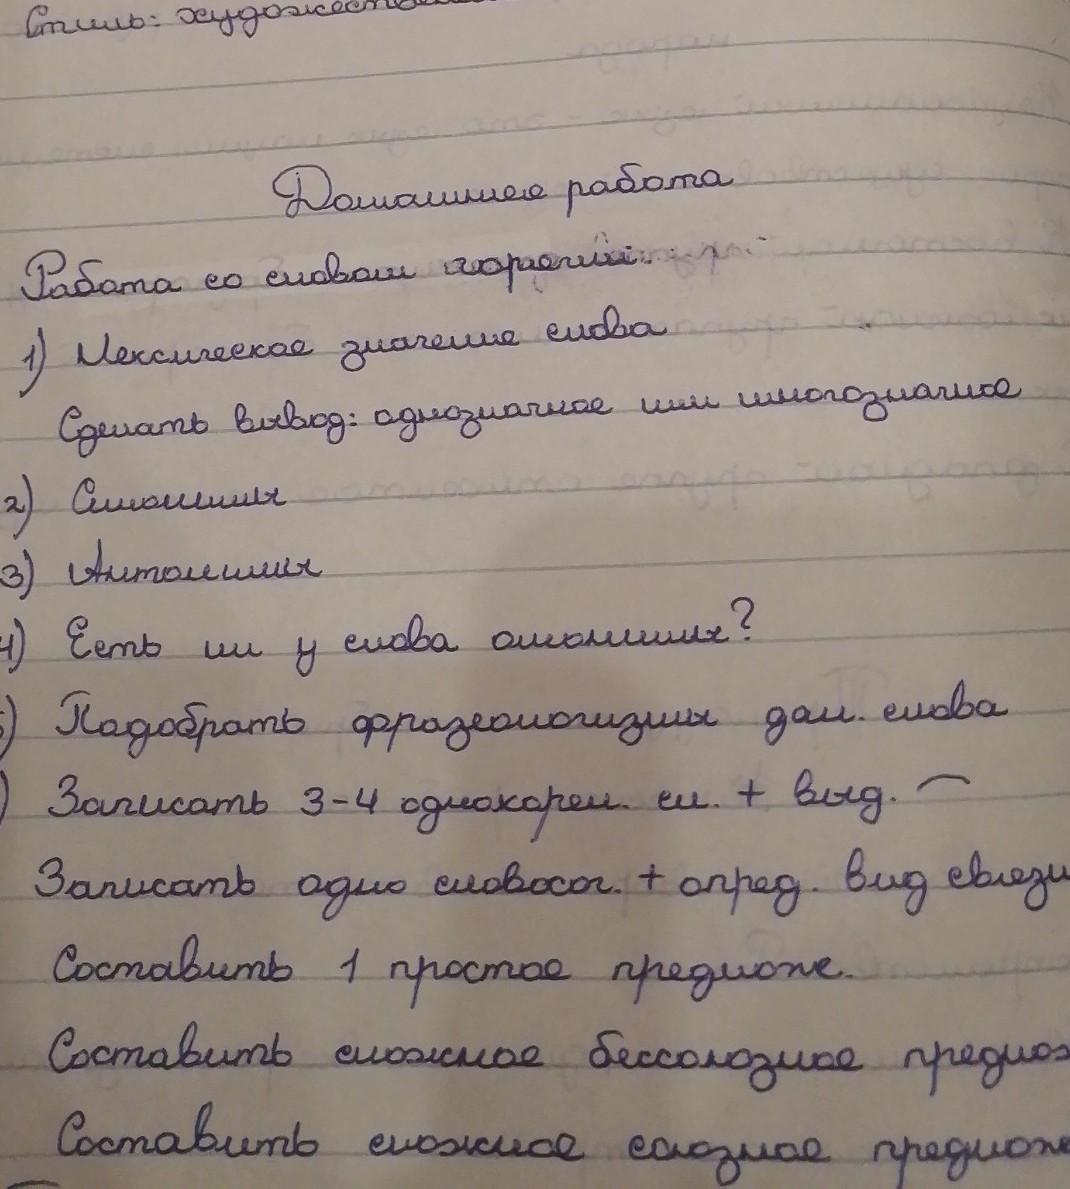 Стиль: художеств
Домашнее работа
Работа со словом горячий
1) Лексическое значение слова
Сделать вывод: однозначное или многозначное
2) Синонимы
3) Антонимы
4) Есть ли у слова омонимы?
5) Подобрать фразеологизмы дан. слова
) Записать 3-4 однокорен. сл. + выд. ⌒
Записать одно словосоч. + опред. вид связи
Составить 1 простое предлож.
Составить сложное бессоюзное предлож
Составить сложное союзное предлож